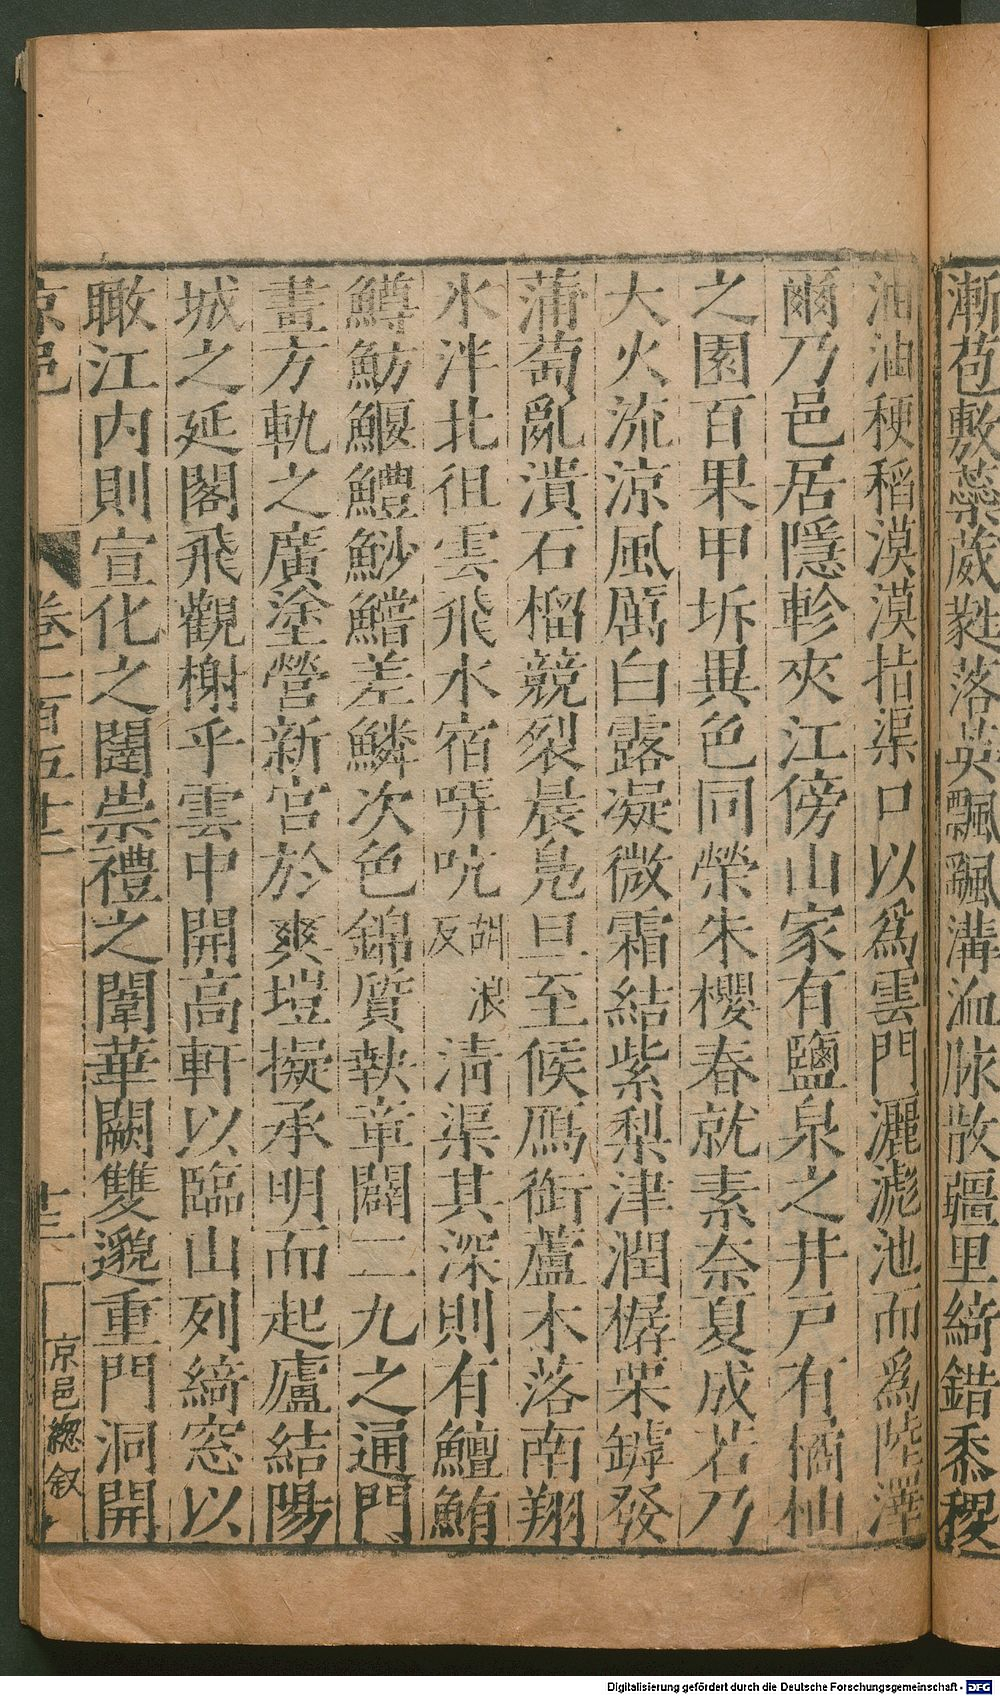 漸苞敷蘂葳蕤落英飄颻溝洫脉散疆里綺錯黍稷
油油稉稻漠漠指渠口以爲雲門灑滮池而爲陸澤
爾乃邑居隱軫夾江傍山家有鹽泉之井戸有橘柚
之園百果甲坼異色同榮朱櫻春就素柰夏成若乃
大火流涼風厲白露凝微霜結紫梨津潤樼栗罅發
蒲萄亂潰石榴競裂晨鳬旦至候鴈銜蘆木落南翔
水泮北徂雲飛水宿哢吭胡浪反清渠其深則有鱣鮪
鱒魴鰋鱧魦鱨差鱗次色錦質執章闢二九之通門
畫方軌之廣塗營新宮於爽塏擬承明而起廬結陽
城之延閣飛觀榭乎雲中開高軒以臨山列綺窓以
瞰江内則宣化之闥崇禮之闈華闕雙邈重門洞開
京邑 卷二百五十二 十三 京邑緫叙
Digitalisierung gefördert durch die Deutsche Forschungsgemeinschaft - DFG